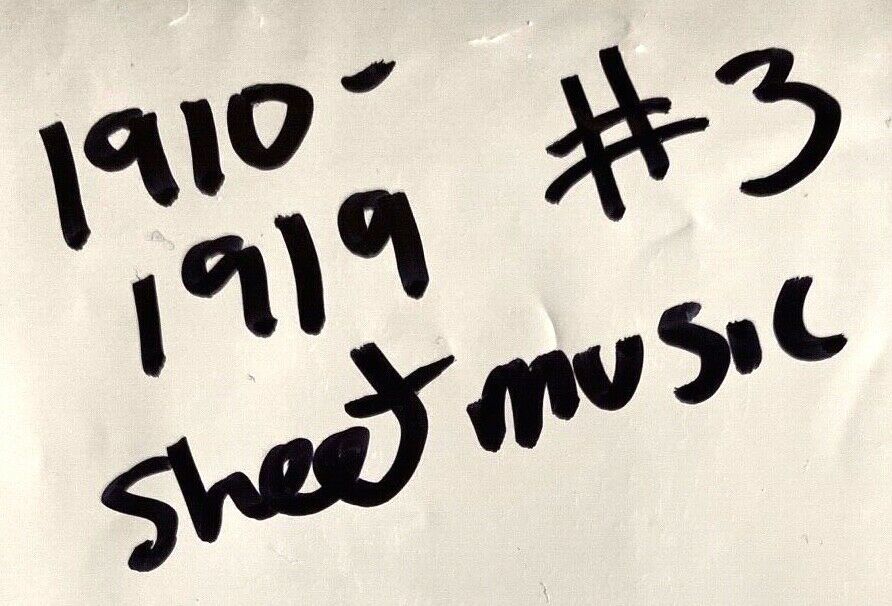 1910- #3
1919
Sheet music